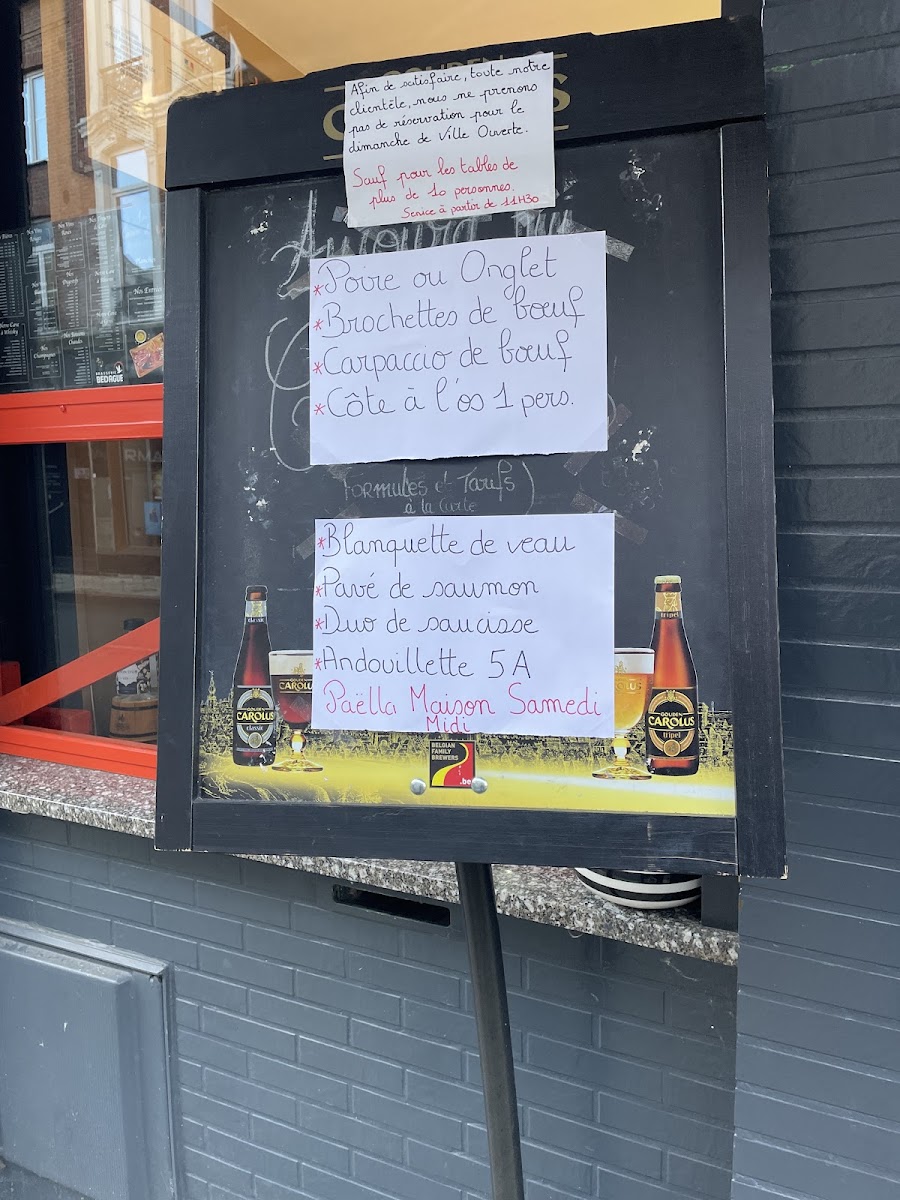 Afin de satisfaire, toute notre
clientèle, nous ne prenons
pas de réservation pour le
dimanche de Ville Ouverte.
Sauf pour les tables de
plus de 10 personnes.
Service à partir de 11H30
*Poire ou Onglet
*Brochettes de bœuf
*Carpaccio de bœuf
*Côte à l'os 1 pers.
Formules et Tarifs)
à la Carte
*Blanquette de veau
*Pavé de saumon
*Duo de saucisse
*Andouillette 5A
Paëlla Maison Samedi
Midi
classic
CAROLUS
GOUDEN
CAROLUS
classic
tripel
CAROLUS
GOUDEN
CAROLUS
tripel
BELGIAN
FAMILY
BREWERS
.be
BRASSERIE
BEDAGUE